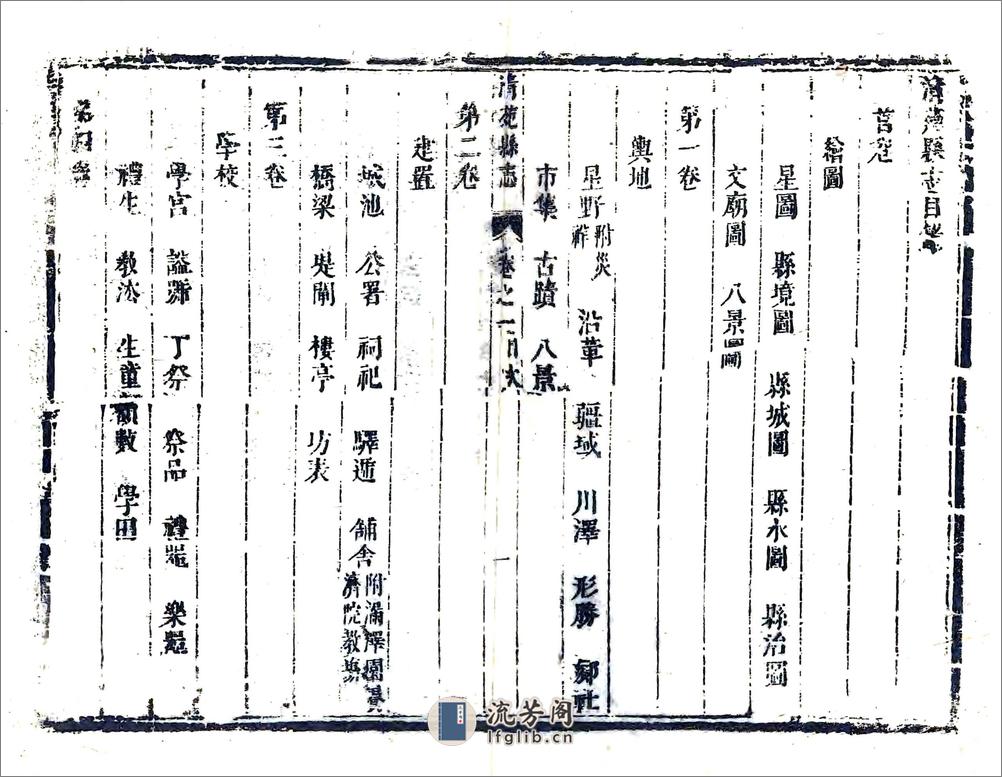 清苑縣志目錄
首卷
繪圖
星圖 縣境圖 縣城圖 縣水圖 縣治圖
文廟圖 八景圖
第一卷
輿地
星野附災祥 沿革 疆域 川澤 形勝 鄉社
市集 古蹟 八景
清苑縣志 卷之一目次 一
第二卷
建置
城池 公署 祠祀 驛遞 舖舍附漏澤園養濟院教塲
橋梁 堤閘 樓亭 坊表
第三卷
學校
學宮 謚號 丁祭 祭品 禮器 樂器
禮生 教法 生童額數 學田
第四卷
流芳阁
lfglib.cn